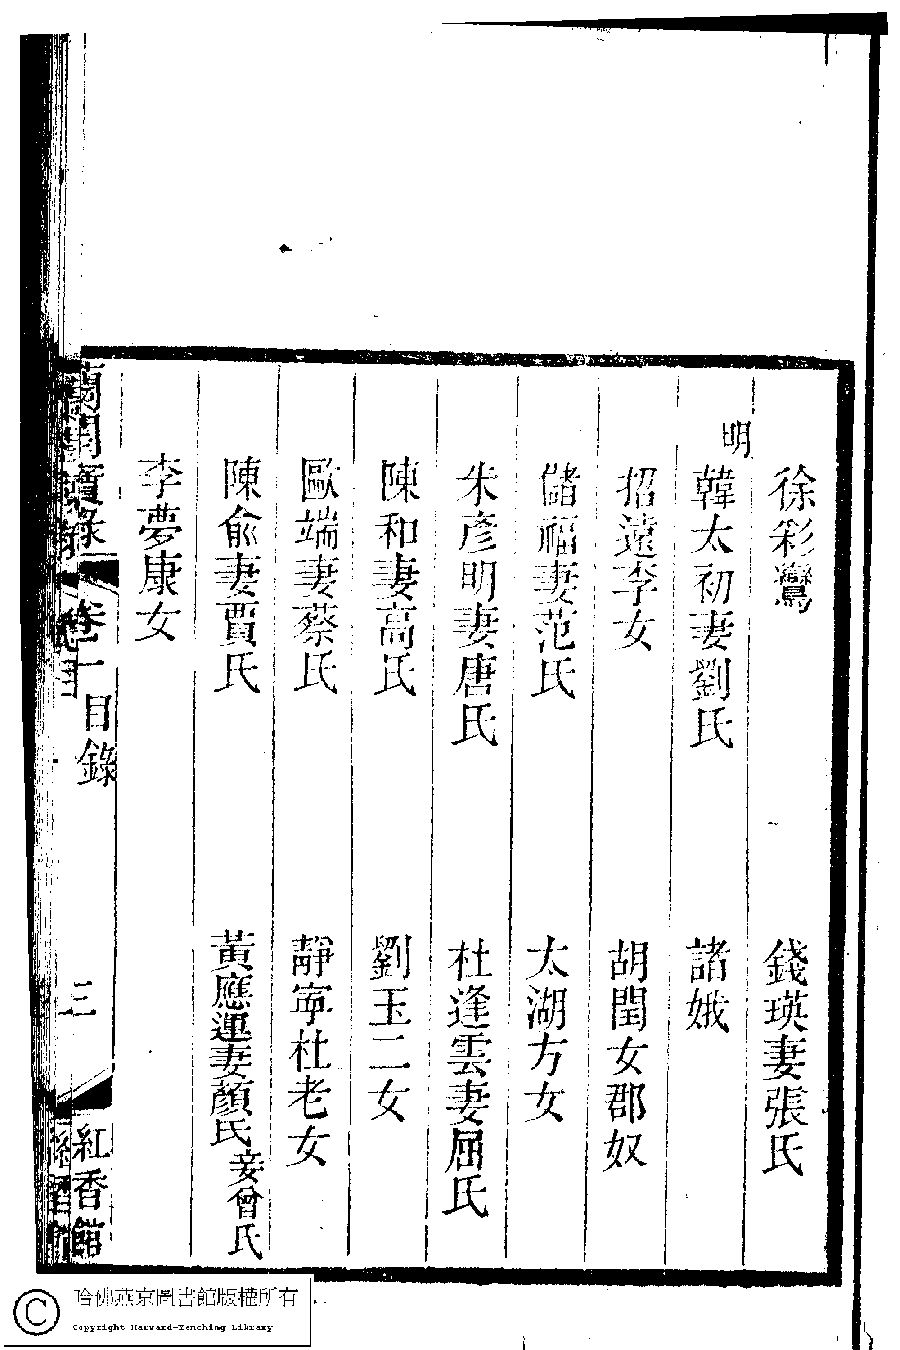 徐彩鸞　錢瑛妻張氏
明
韓太初妻劉氏　諸娥
招遠李女　胡閏女郡奴
儲福妻范氏　太湖方女
朱彥明妻唐氏　杜逢雲妻屈氏
陳和妻高氏　劉玉二女
歐端妻蔡氏　靜寧杜老女
陳兪妻賈氏　黃應運妻顏氏妾曾氏
李夢康女
蘭閨寶錄　卷一　目錄　三　紅香館
哈佛燕京圖書館版權所有
Copyright Harvard-Yenching Library